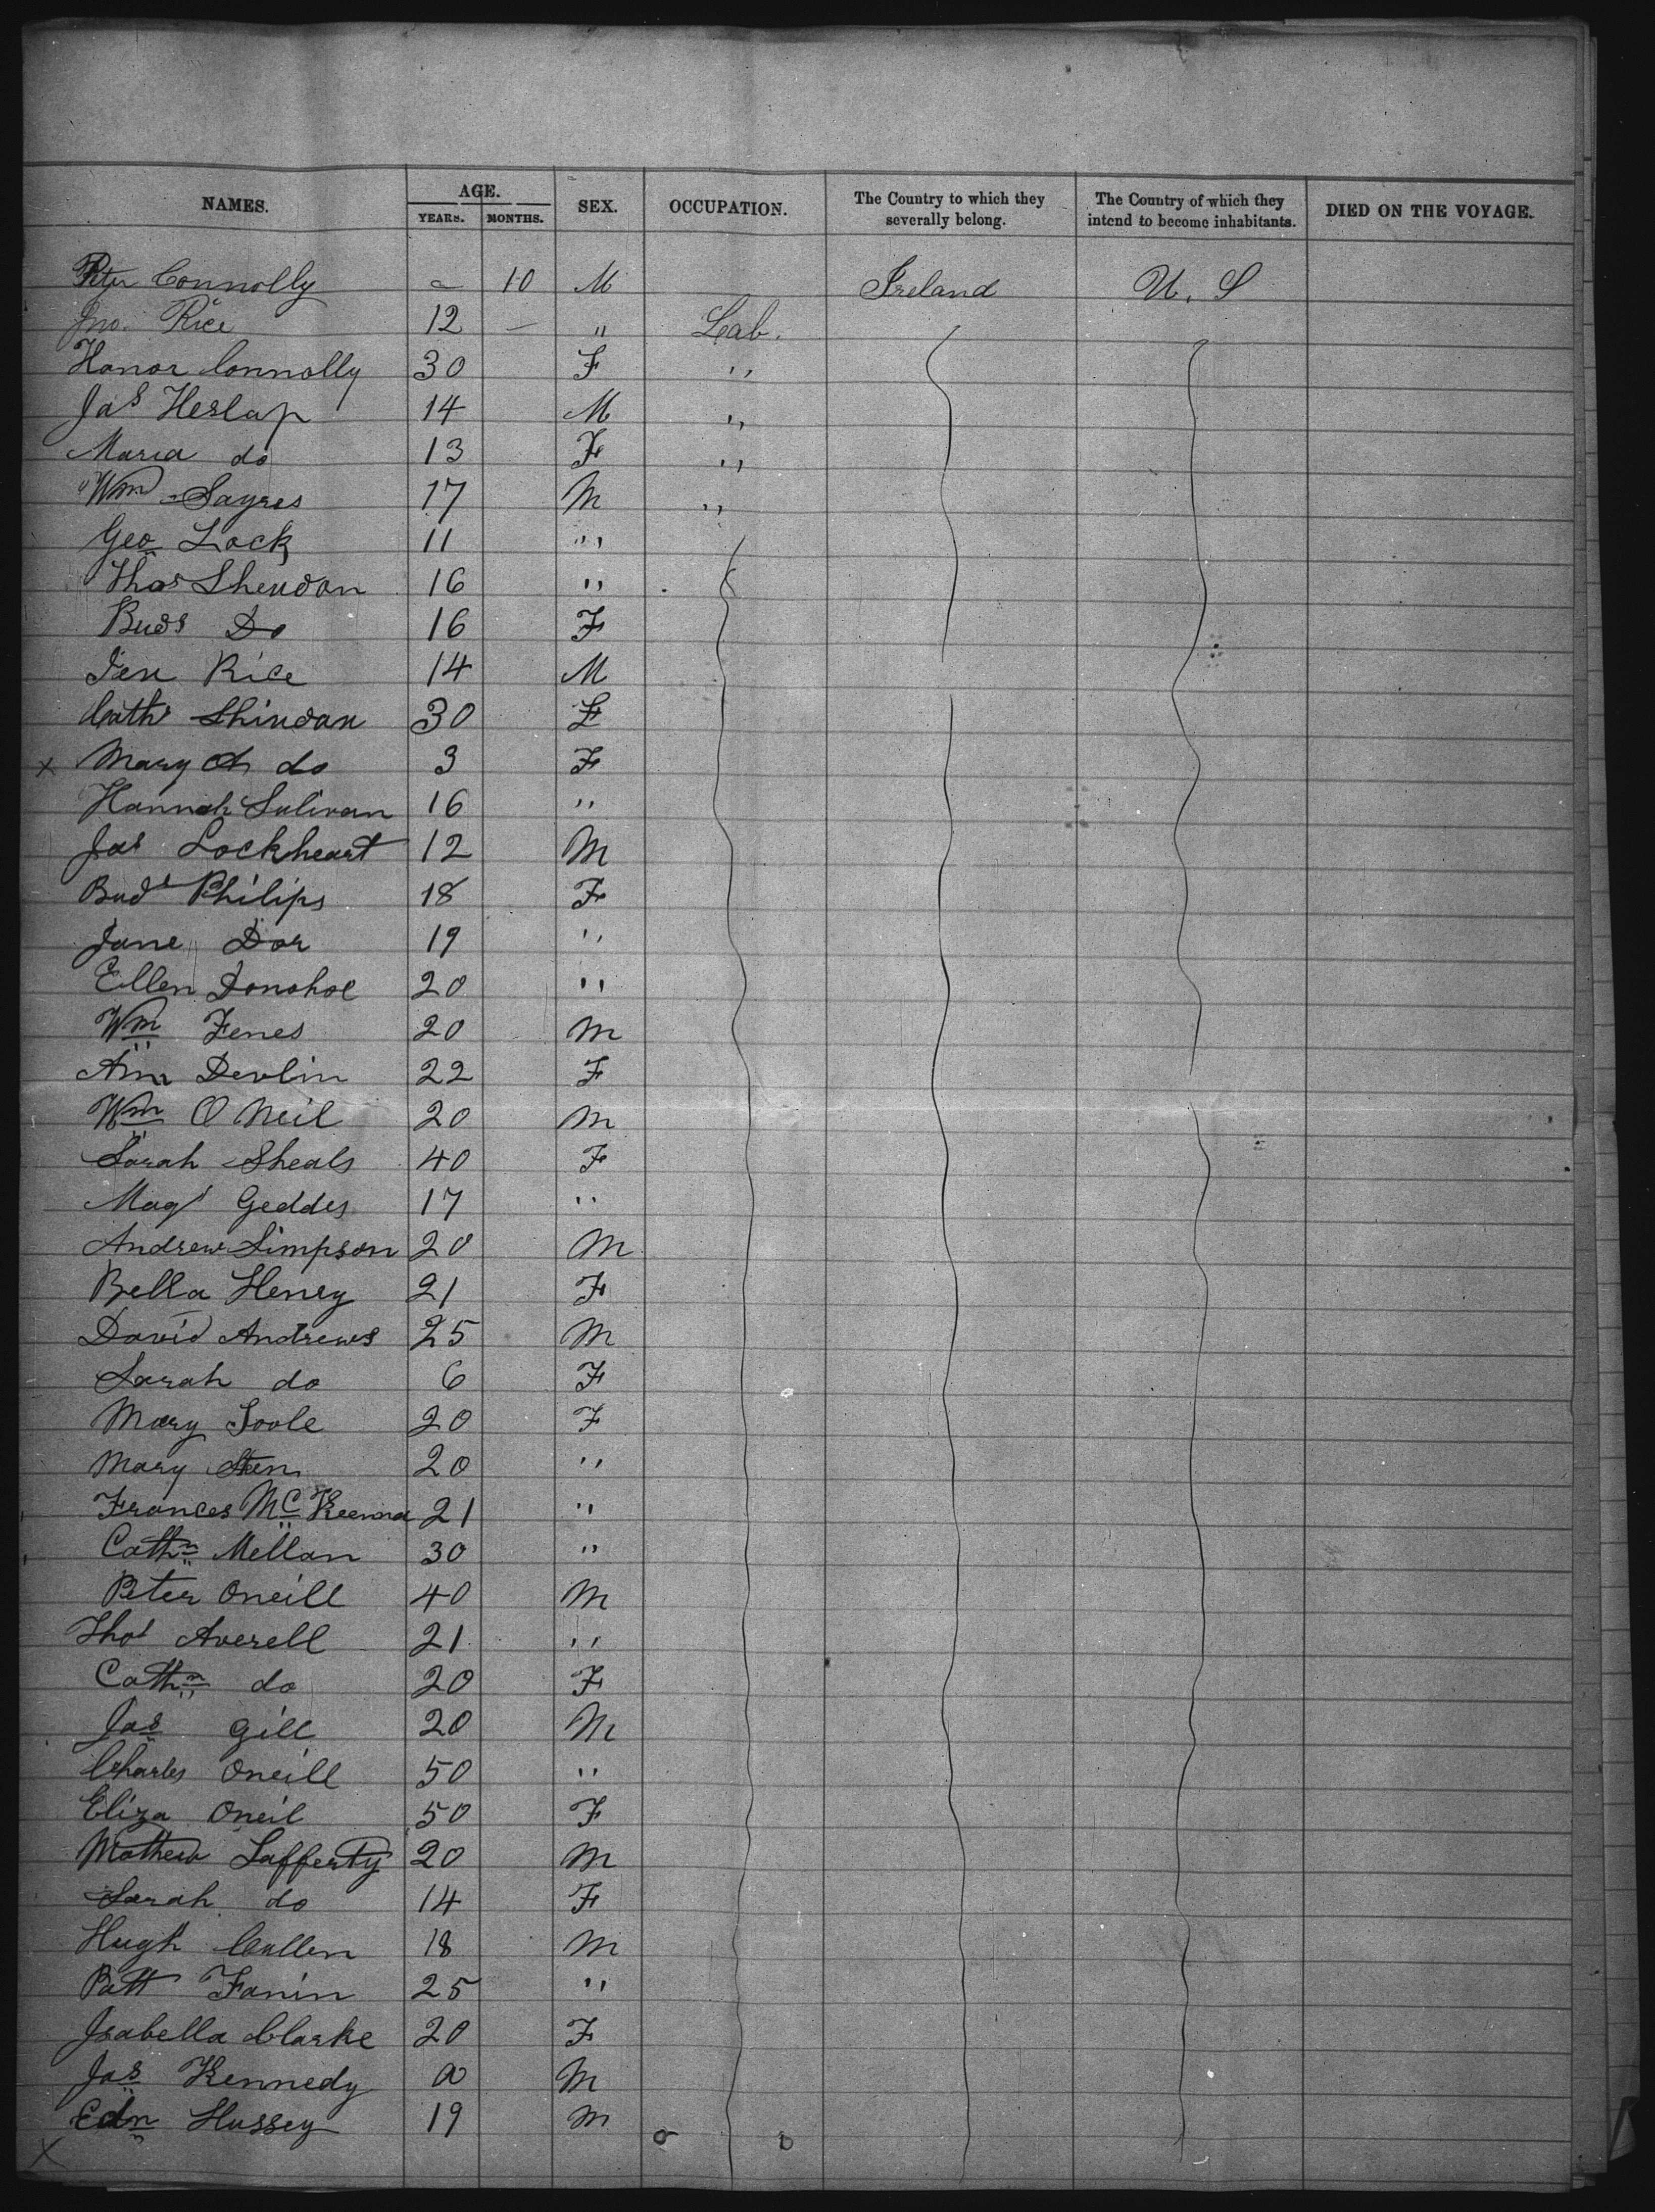 NAMES. AGE. YEARS. MONTHS. SEX. OCCUPATION. The Country to which they severally belong. The Country of which they intend to become inhabitants. DIED ON THE VOYAGE.
Peter Connolly - 10 M Ireland U. S
Jno. Rice 12 - " Lab.
Honor Connolly 30 F "
Jas Heslap 14 M "
Maria do 13 F "
Wm Sayres 17 M "
Geo Lock 11 "
Thos Sheridan 16 "
Do 16 F
Rice 14 M
Cath 30 F
x Mary A do 3 F
Hannah Sulivan 16 "
Jas Lockheart 12 M
Philips 18 F
Jane Dor 19 "
Ellen Donohoe 20 "
Wm Fenes 20 M
Ann Devlin 22 F
Wm O Neil 20 M
Sarah Sheals 40 F
Magt Geddes 17 "
Andrew Simpson 20 M
Bella Henry 21 F
David Andrews 25 M
Sarah do 6 F
Mary Toole 20 F
Mary 20 "
Frances McKeenna 21 "
Cathn Mellan 30 "
Peter Oneill 40 M
Thos Averell 21 "
Cathn do 20 F
Jas Gill 20 M
Charles Oneill 50 "
Eliza Oneil 50 F
Mathew Lafferty 20 M
Sarah do 14 F
Hugh Cullen 18 M
Patt Fanin 25 "
Isabella Clarke 20 F
Jas Kennedy M
Edn Hussey 19 M
x